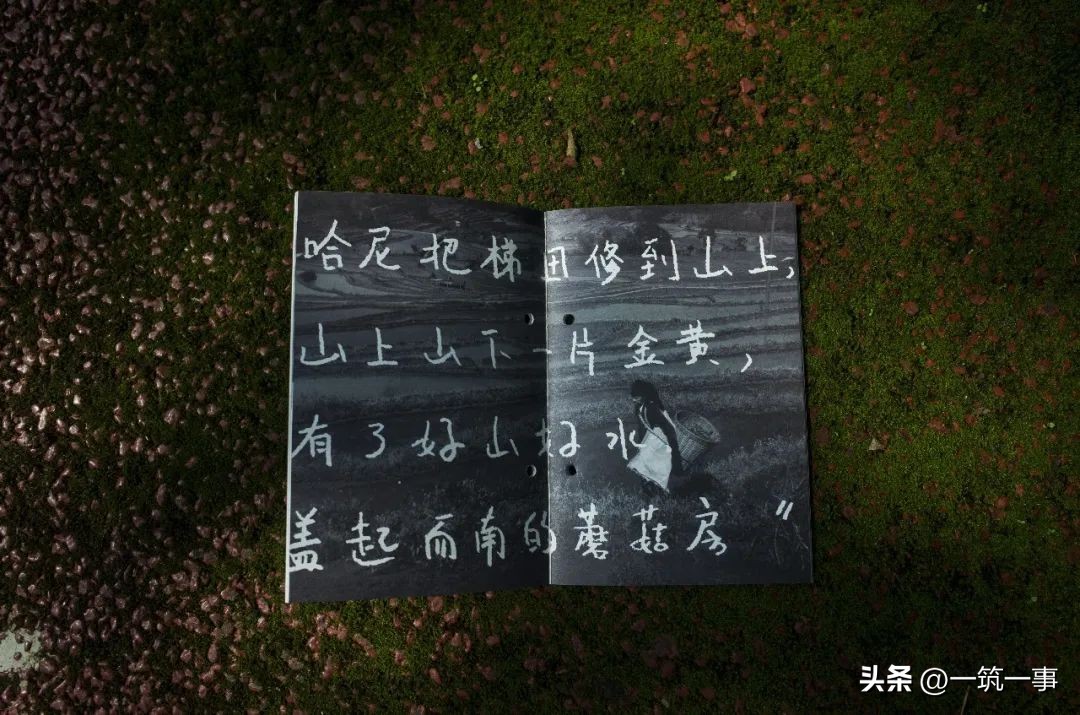 哈尼把梯田修到山上,
山上山下一片金黄,
有了好山好水
盖起而南的蘑菇房”
头条 @一筑一事